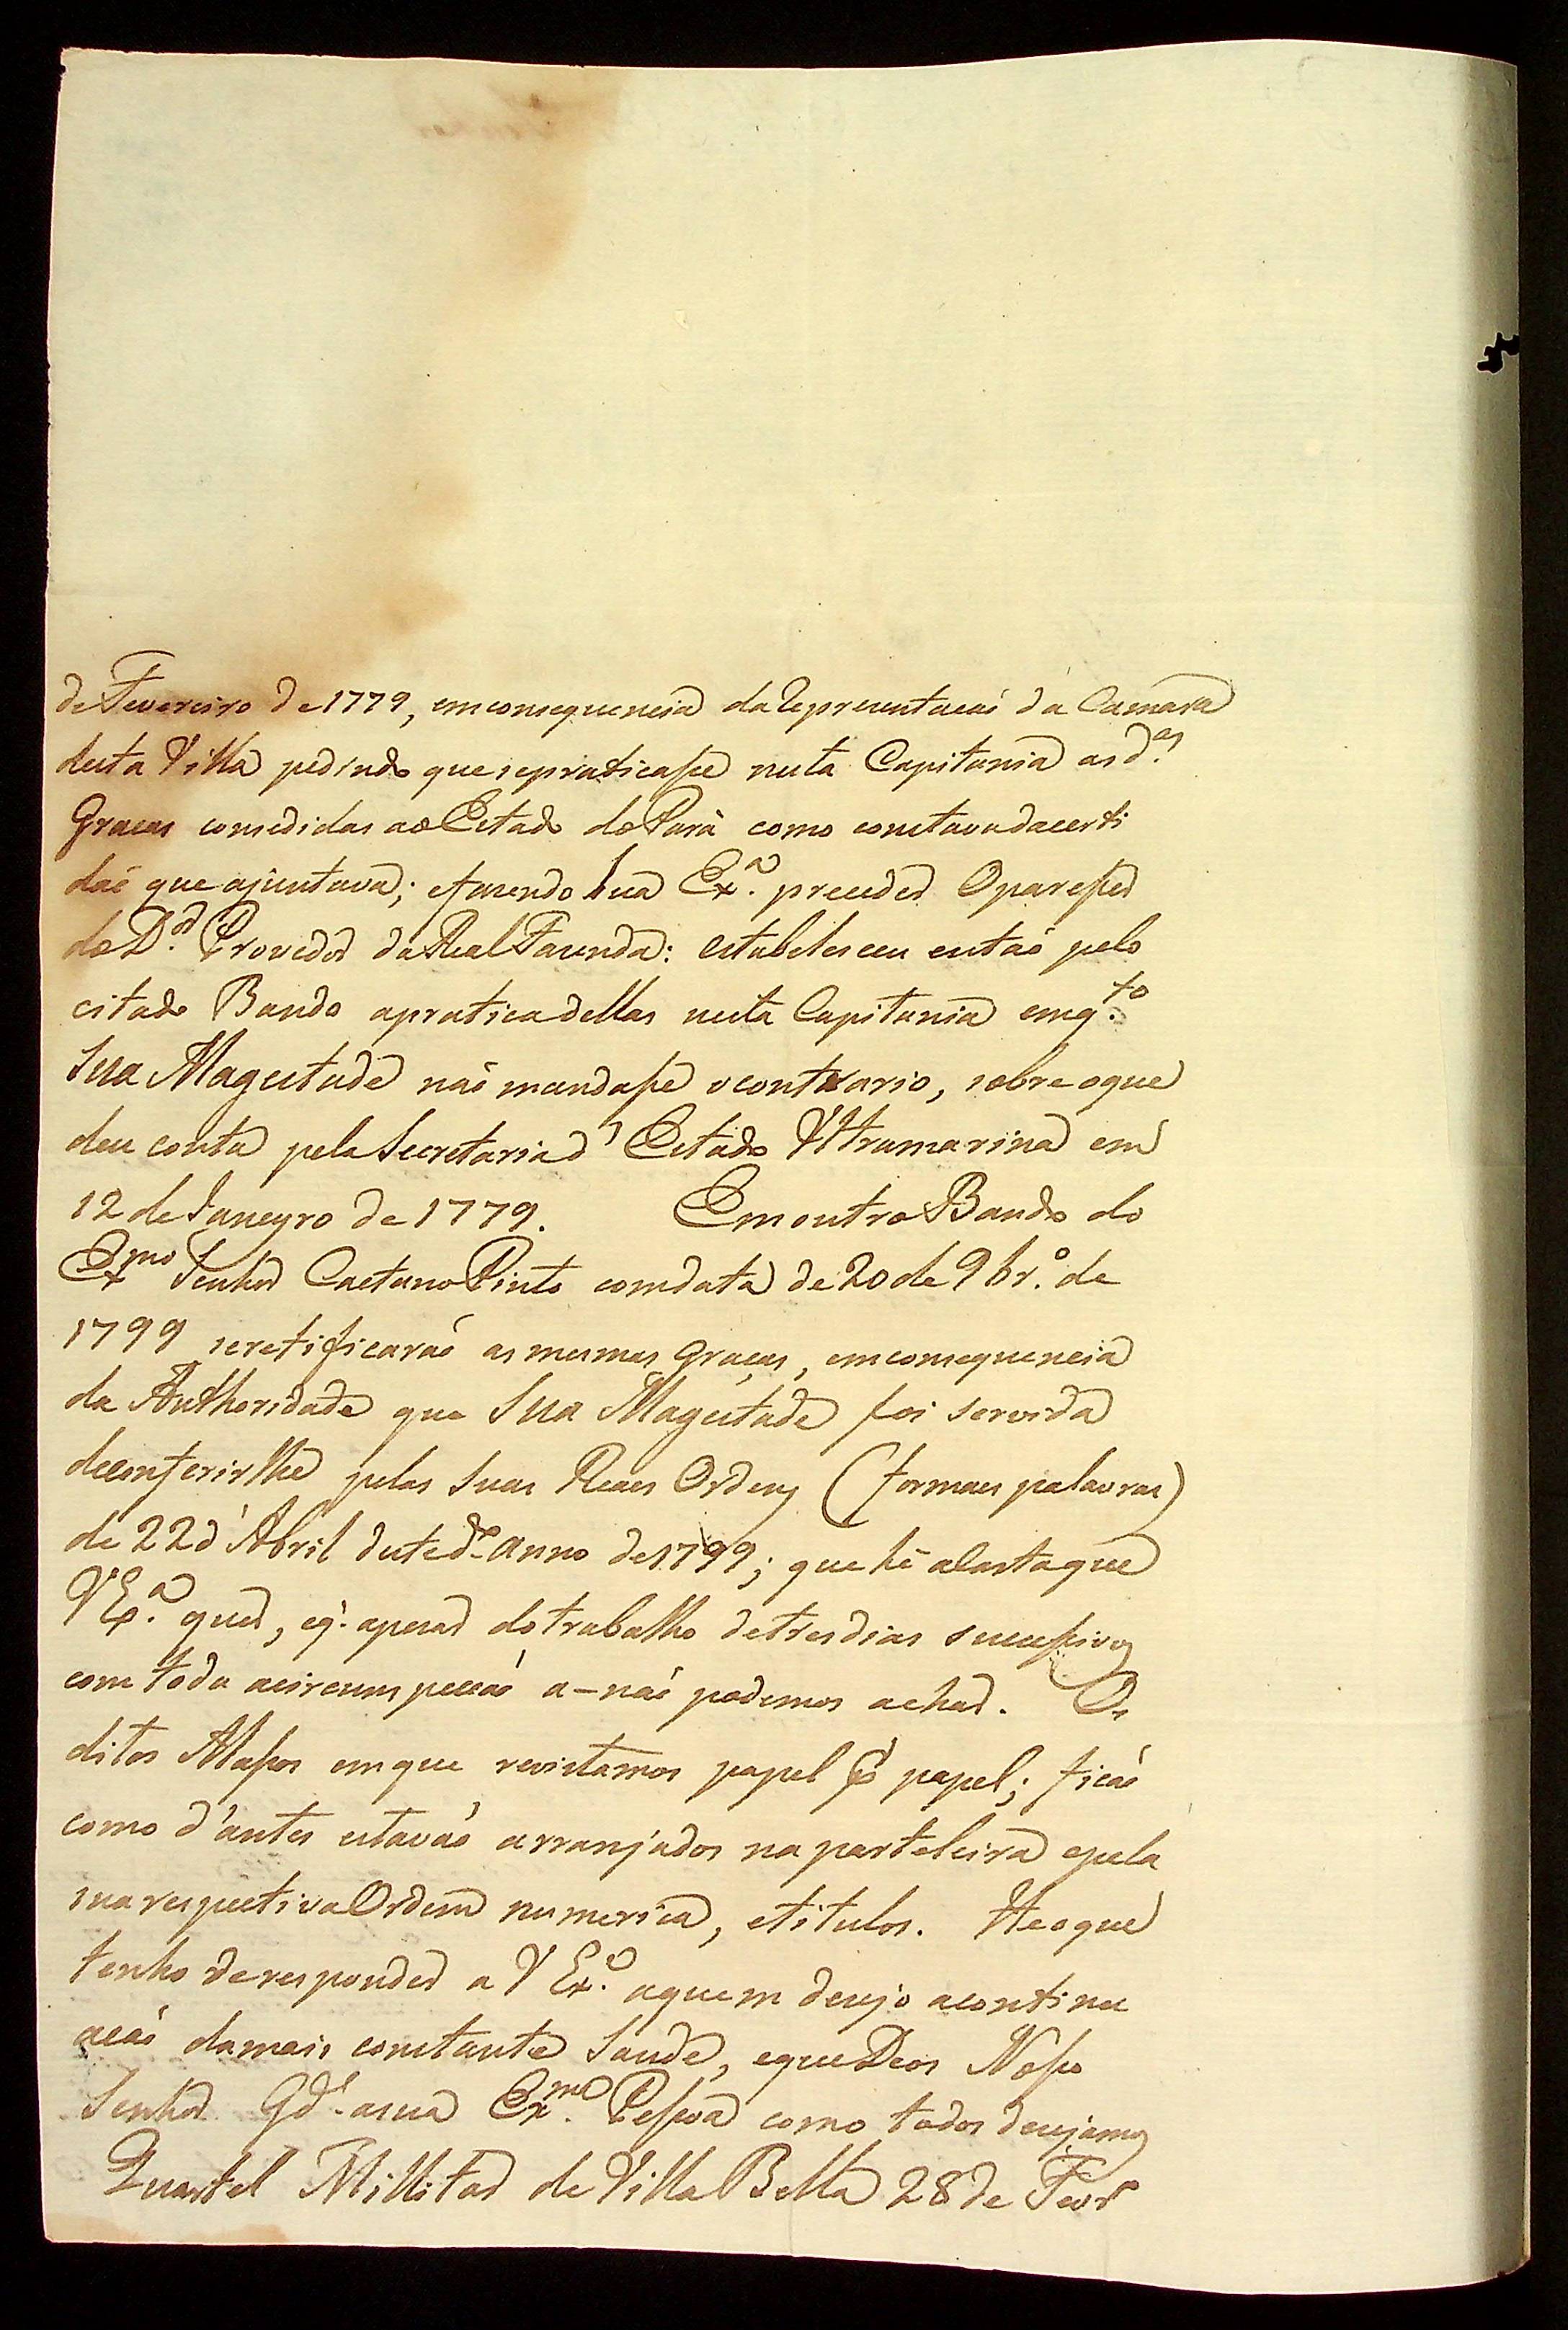 de Fevereiro de 1779, emconsequencia da Reprezentacaõ da Camara
desta Villa pedindo que sepraticaſse nesta Capitania as d.as
Gracas consedidas ao Estado do Parà como constavadacerti
daõ que ajuntava; efazendo Sua Ex.a preceder Opareſser
do D.or Provedor da Real Fazenda: estabelesceu entaõ pelo
citado Bando apraticadellas nesta Capitania emq.to
Sua Magestade naõ mandaſse ocontrario, sobre oque
deu conta pela Secretaria d' Estado Ultramarina em
12 de Janeyro de 1779. Em outro Bando do
Ex.mo Senhor Caetano Pinto comdata de 20 de 9br.o de
1799 seretificaraõ as mesmas graças, emconsequencia
da Authoridade que Sua Magestade foi servida
deconferirlhe pelas Suas Reaes Ordens (formaes palavras)
de 22 d'Abril deste d.o anno de 1799; que hé aCarta que
V Ex.a quer, eq. apezar do trabalho detres dias succeſsivos
com toda acircumspeccaõ a-naõ podemos achar. Os
ditos Maſsos emque revistamos papel p.r papel; ficaõ
como d'antes estavaõ arranjados na parteleira epela
sua respectiva Ordem numerica, etitulos. He oque
tenho de responder a V Ex.a aquem desejo acontinu
acaõ damais constante Saude, eque Deos Noſso
Senhor G.de asua Ex.ma Peſsoa como todos desejamos
Quartel Millitar de Villa Bella 28 de Fevr.o